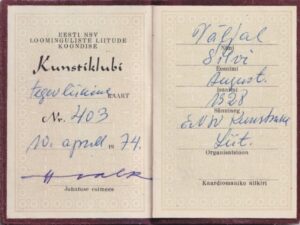 EESTI NSV
LOOMINGULISTE LIITUDE
KOONDISE
Kunstiklubi
tegevliikme KAART
Nr. 403
10. aprill 19 74.
Juhatuse esimees
Väljal
Nimi
Silvi
Eesnimi
August.
Isanimi
1928
Sünniaeg
ENSV Kunstn.
Liit.
Organisatsioon
Kaardiomaniku allkiri